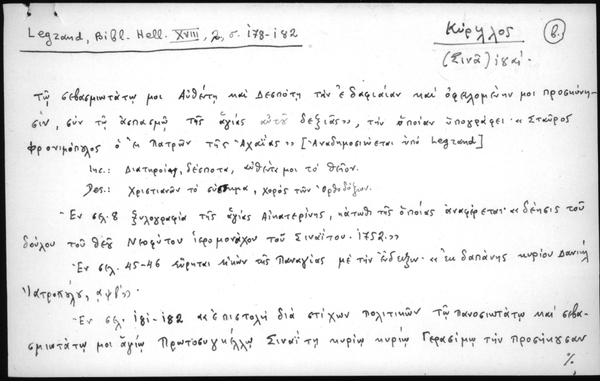 Legrand, Bibl. Hell. XVIII, 2, σ. 178-182
Κύριλλος
β.
(Σινᾶ) ἰδαί.
τῷ σεβασμιωτάτῳ μοι Αὐθέντῃ καὶ Δεσπότῃ τὴν ἐδαφιαίαν καὶ ὀφειλομένην μοι προσκύνη-
σιν, σὺν τῷ ἀσπασμῷ τῆς ἁγίας αὐτοῦ δεξιᾶς», τὴν ὁποίαν ὑπογράφει «Σταῦρος
Φρονιμόπουλος ὁ ἐκ Πατρῶν τῆς Ἀχαΐας» [Ἀναδημοσιεύεται ὑπὸ Legrand]
Inc.: Διατηροίης, δέσποτα, αὐθέντα μοι τὸ θεῖον.
Des.: Χριστιανῶν τὸ σύστημα, χορὸς τῶν Ὀρθοδόξων.
Ἐν σελ. 8 ξυλογραφία τῆς ἁγίας Αἰκατερίνης, κάτωθι τῆς ὁποίας ἀναφέρεται «δέησις τοῦ
δούλου τοῦ Θεοῦ Νεοφύτου ἱερομονάχου τοῦ Σιναΐτου. 1752.»
Ἐν σελ. 45-46 εὕρηται εἰκὼν τῆς Παναγίας μὲ τὴν ἔνδειξιν «ἐκ δαπάνης κυρίου Δανιὴλ
Ἰατροπούλου, αψβ'»
Ἐν σελ. 181-182 «ἐπιστολὴ διὰ στίχων πολιτικῶν τῷ πανοσιωτάτῳ καὶ σεβα-
σμιωτάτῳ μοι ἁγίῳ Πρωτοσυγκέλλῳ Σιναΐτῃ κυρίῳ κυρίῳ Γερασίμῳ τὴν προσήκουσαν
%